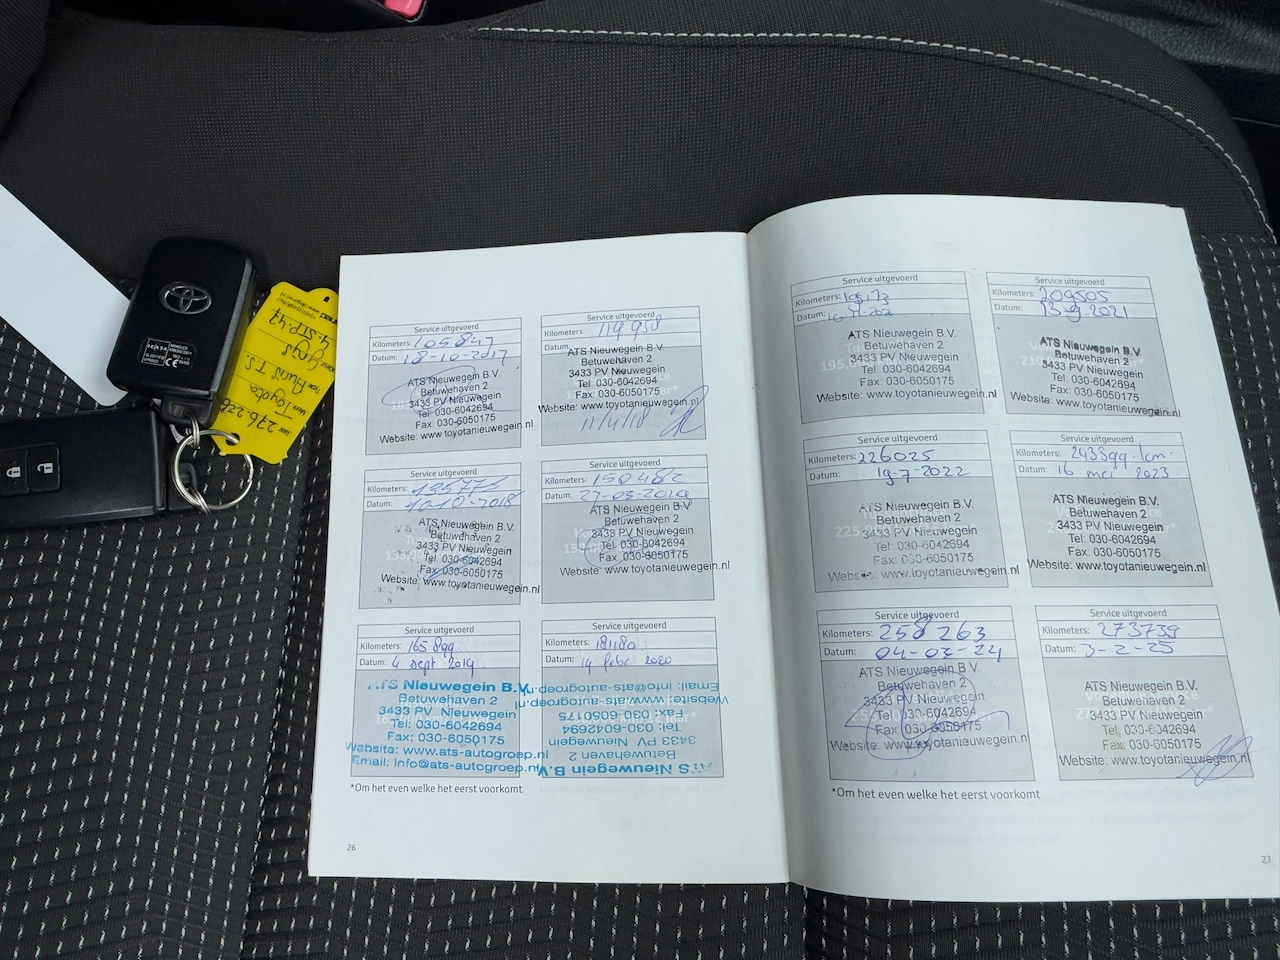 276.226
Toyota
Auris T.S.
Grijs
4-STP-47
Service uitgevoerd
Kilometers: 105847
Datum: 18-10-2017
ATS Nieuwegein B.V.
Betuwehaven 2
3433 PV Nieuwegein
Tel: 030-6042694
Fax: 030-6050175
Website: www.toyotanieuwegein.nl
Service uitgevoerd
Kilometers: 119958
Datum:
ATS Nieuwegein B.V.
Betuwehaven 2
3433 PV Nieuwegein
Tel: 030-6042694
Fax: 030-6050175
Website: www.toyotanieuwegein.nl
11/4/18
Service uitgevoerd
Kilometers: 135775
Datum: 10-10-2018
ATS Nieuwegein B.V.
Betuwehaven 2
3433 PV Nieuwegein
Tel: 030-6042694
Fax: 030-6050175
Website: www.toyotanieuwegein.nl
Service uitgevoerd
Kilometers: 150482
Datum: 27-03-2019
ATS Nieuwegein B.V.
Betuwehaven 2
3433 PV Nieuwegein
Tel: 030-6042694
Fax: 030-6050175
Website: www.toyotanieuwegein.nl
Service uitgevoerd
Kilometers: 165899
Datum: 4 sept 2019
ATS Nieuwegein B.V.
Betuwehaven 2
3433 PV Nieuwegein
Tel: 030-6042694
Fax: 030-6050175
Website: www.ats-autogroep.nl
Email: info@ats-autogroep.nl
Service uitgevoerd
Kilometers: 181180
Datum: 14 febr 2020
ATS Nieuwegein B.V.
Betuwehaven 2
3433 PV Nieuwegein
Tel: 030-6042694
Fax: 030-6050175
Website: www.ats-autogroep.nl
Email: info@ats-autogroep.nl
*Om het even welke het eerst voorkomt
26
Service uitgevoerd
Kilometers:
Datum:
ATS Nieuwegein B.V.
Betuwehaven 2
3433 PV Nieuwegein
Tel: 030-6042694
Fax: 030-6050175
Website: www.toyotanieuwegein.nl
Service uitgevoerd
Kilometers: 209505
Datum: 2021
ATS Nieuwegein B.V.
Betuwehaven 2
3433 PV Nieuwegein
Tel: 030-6042694
Fax: 030-6050175
Website: www.toyotanieuwegein.nl
Service uitgevoerd
Kilometers: 226025
Datum: 19-7-2022
ATS Nieuwegein B.V.
Betuwehaven 2
3433 PV Nieuwegein
Tel: 030-6042694
Fax: 030-6050175
Website: www.toyotanieuwegein.nl
Service uitgevoerd
Kilometers: 243899 km.
Datum: 16 mei 2023.
ATS Nieuwegein B.V.
Betuwehaven 2
3433 PV Nieuwegein
Tel: 030-6042694
Fax: 030-6050175
Website: www.toyotanieuwegein.nl
Service uitgevoerd
Kilometers: 258263
Datum: 04-03-24
ATS Nieuwegein B.V.
Betuwehaven 2
3433 PV Nieuwegein
Tel: 030-6042694
Fax: 030-6050175
Website: www.toyotanieuwegein.nl
Service uitgevoerd
Kilometers: 273739
Datum: 3-2-25
ATS Nieuwegein B.V.
Betuwehaven 2
3433 PV Nieuwegein
Tel: 030-6042694
Fax: 030-6050175
Website: www.toyotanieuwegein.nl
*Om het even welke het eerst voorkomt
27